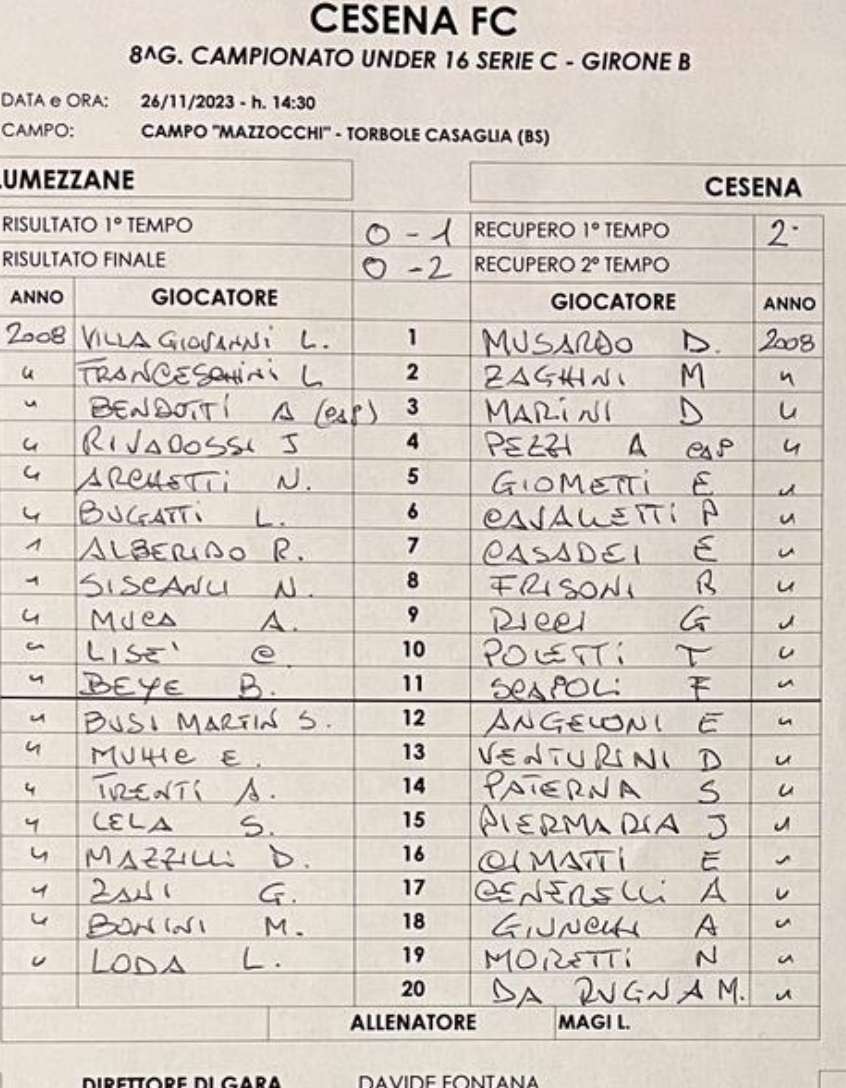 CESENA FC
8^G. CAMPIONATO UNDER 16 SERIE C - GIRONE B
DATA e ORA: 26/11/2023 - h. 14:30
CAMPO: CAMPO "MAZZOCCHI" - TORBOLE CASAGLIA (BS)
LUMEZZANE CESENA
RISULTATO 1° TEMPO 0 - 1 RECUPERO 1° TEMPO 2'
RISULTATO FINALE 0 - 2 RECUPERO 2° TEMPO
ANNO GIOCATORE GIOCATORE ANNO
2008 VILLA GIOVANNI L. 1 MUSARDO D. 2008
" FRANCESCHINI L 2 ZAGHINI M "
" BENDOTTI A (cap) 3 MARINI D "
" RIVADOSSI J 4 PEZZI A cap "
" ARCHETTI N. 5 GIOMETTI E "
" BUGATTI L. 6 CAVALLETTI P "
" ALBERIDO R. 7 CASADEI E "
" SISCANU N. 8 FRISONI R "
" MUCA A. 9 RICCI G "
" LISE' C 10 POLETTI T "
" BEYE B. 11 SCAPOLI F "
" BUSI MARTIN S. 12 ANGELONI E "
" MUHIC E. 13 VENTURINI D "
" TRENTI A. 14 PATERNA S "
" LELA S. 15 PIERMARIA J "
" MAZZILLI D. 16 CIMATTI E "
" ZANI G. 17 CENERELLI A "
" BONINI M. 18 GIUNCHI A "
" LODA L. 19 MORETTI N "
20 DA RUGNA M. "
ALLENATORE MAGI L.
DIRETTORE DI GARA DAVIDE FONTANA